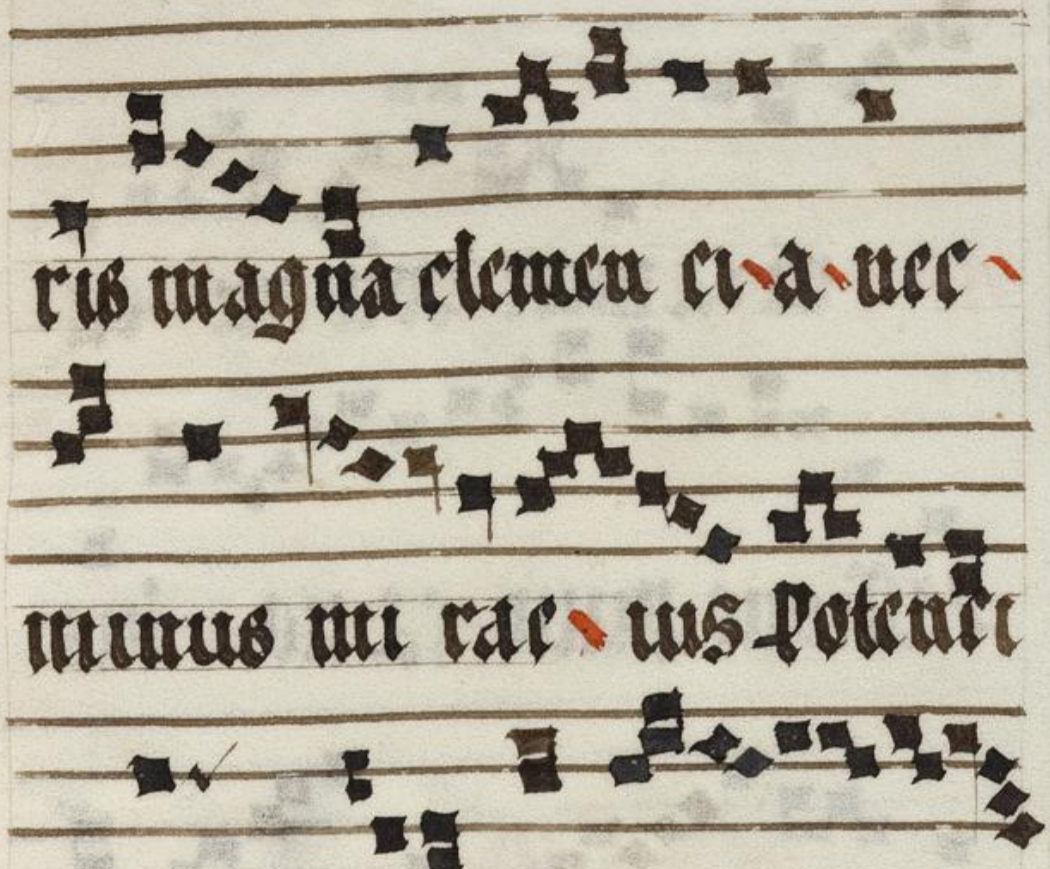 ris magna clemen ci a nec
minus mi rae ius Potenci